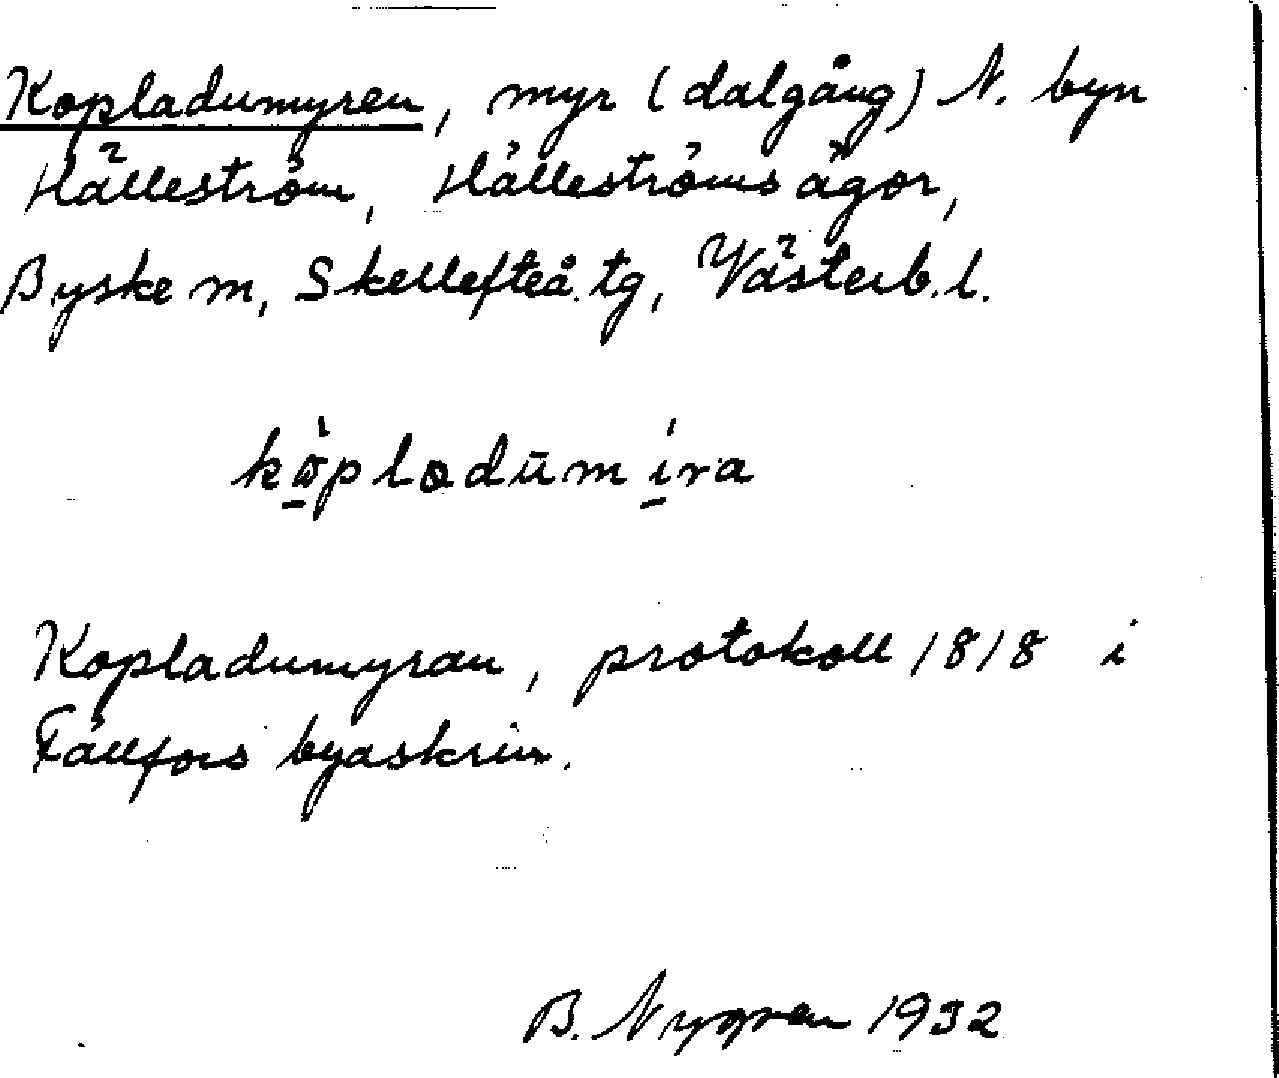 Kopladumyren, myr (dalgång) N. byn
Hälleström, Hälleströms ägor,
Byske m, Skellefteå tg, Västerb. l.
Kopladumyran, protokoll 1818 i
Fällfors byaskrin.
B. Nygren 1932